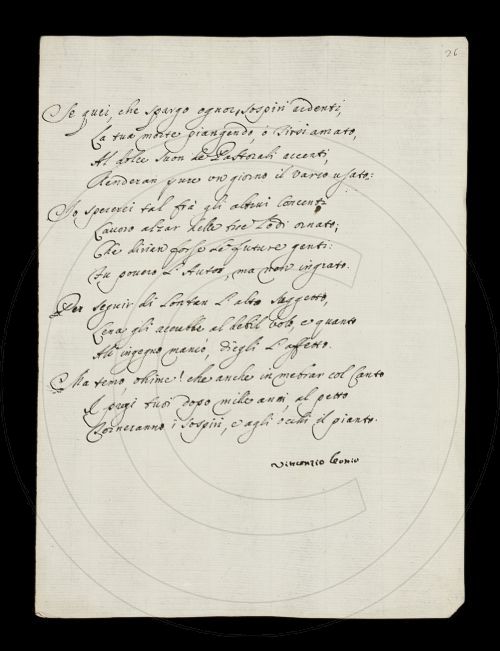 26
Se quei, che spargo ognor, sospiri ardenti,
La tua morte piangendo, o Tirsi amato,
Al dolce suon de Pastorali accenti
Renderan pure un giorno il varco usato:
Io spererei tal frà gli altrui concenti
Lavoro alzar delle tue Lodi ornato;
Che dirian forse le future genti:
Fu povero l'Autor, ma non ingrato.
Per seguir di lontan l'alto suggetto,
Lena gli accrebbe al debil volo, e quanto
All'ingegno mancò, diegli l'affetto.
Ma temo, ohime! che anche in metrar col Canto
I pregi tuoi dopo mille anni, al petto
Torneranno i sospiri, e agli occhi il pianto.
Vincenzio Leonio